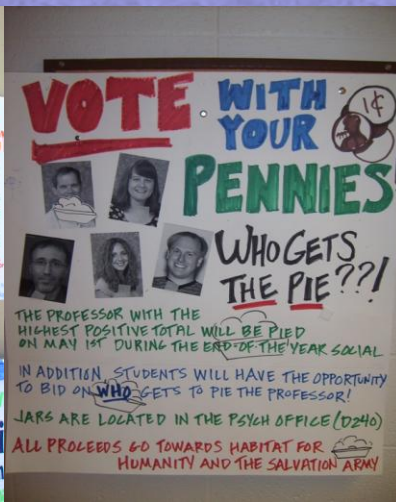 VOTE WITH
YOUR
PENNIES
1¢
WHO GETS
THE PIE??!
THE PROFESSOR WITH THE
HIGHEST POSITIVE TOTAL WILL BE PIED
ON MAY 1ST DURING THE END-OF-THE YEAR SOCIAL
IN ADDITION STUDENTS WILL HAVE THE OPPORTUNITY
TO BID ON WHO GETS TO PIE THE PROFESSOR!
JARS ARE LOCATED IN THE PSYCH OFFICE (D240)
ALL PROCEEDS GO TOWARDS HABITAT FOR
HUMANITY AND THE SALVATION ARMY